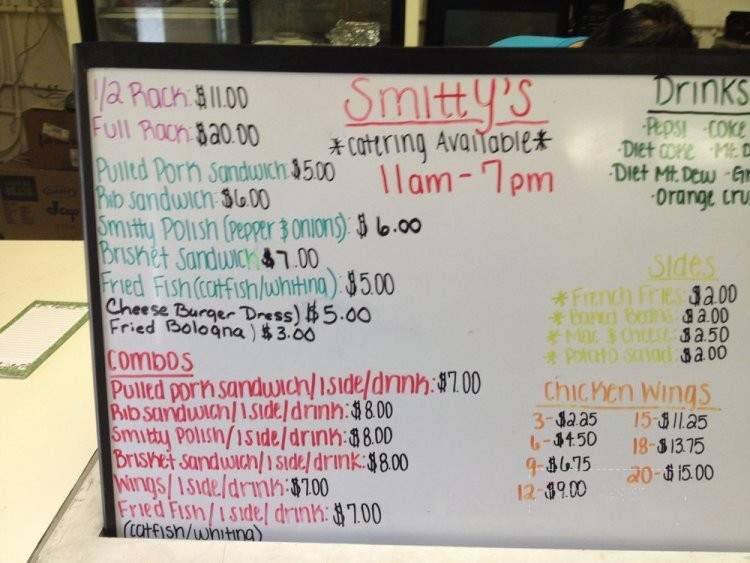 1/2 Rack: $11.00
Full Rack: $20.00
Pulled Pork Sandwich: $5.00
Rib sandwich: $6.00
Smitty Polish (pepper & onions): $6.00
Brisket Sandwich $7.00
Fried Fish (catfish/whiting): $5.00
Cheese Burger Dress) $5.00
Fried Bologna) $3.00
Combos
Pulled pork sandwich/1side/drink: $7.00
Rib sandwich/1side/drink: $8.00
Smitty Polish/1side/drink: $8.00
Brisket sandwich/1side/drink: $8.00
Wings/1side/drink: $7.00
Fried Fish/1side/drink: $7.00
(catfish/whiting)
Smitty's
*Catering Available*
11am-7pm
Drinks
·Pepsi ·Coke
·Diet Coke ·Mt. D
·Diet Mt. Dew ·Gr
·Orange Cru
Sides
*French Fries: $2.00
*Baked Beans: $2.00
*Mac & Cheese: $2.50
*Potato Salad: $2.00
Chicken Wings
3-$2.25 15-$11.25
6-$4.50 18-$13.75
9-$6.75 20-$15.00
12-$9.00